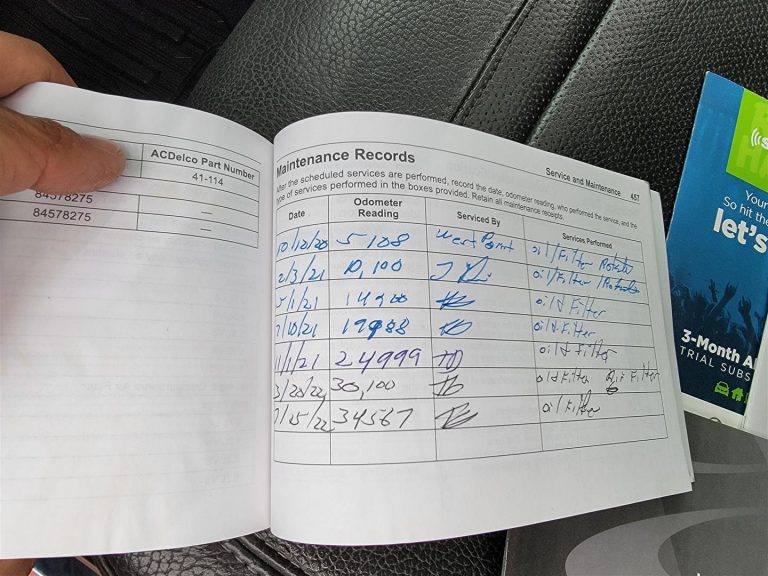 ACDelco Part Number
41-114
84578275
—
84578275
—
Service and Maintenance 457
Maintenance Records
After the scheduled services are performed, record the date, odometer reading, who performed the service, and the
type of services performed in the boxes provided. Retain all maintenance receipts.
Date Odometer Reading Serviced By Services Performed
10/12/20 5108 West Point oil/Filter Rotate
2/3/21 10,100 oil/Filter/Rotate
5/1/21 14900 oil & Filter
7/10/21 19988 oil & Filter
11/1/21 24999 oil & Filter
3/20/22 30,100 oil & Filter Air Filter
7/25/22 34567 oil Filter
Your
So hit the
let's
3-Month A
TRIAL SUBS